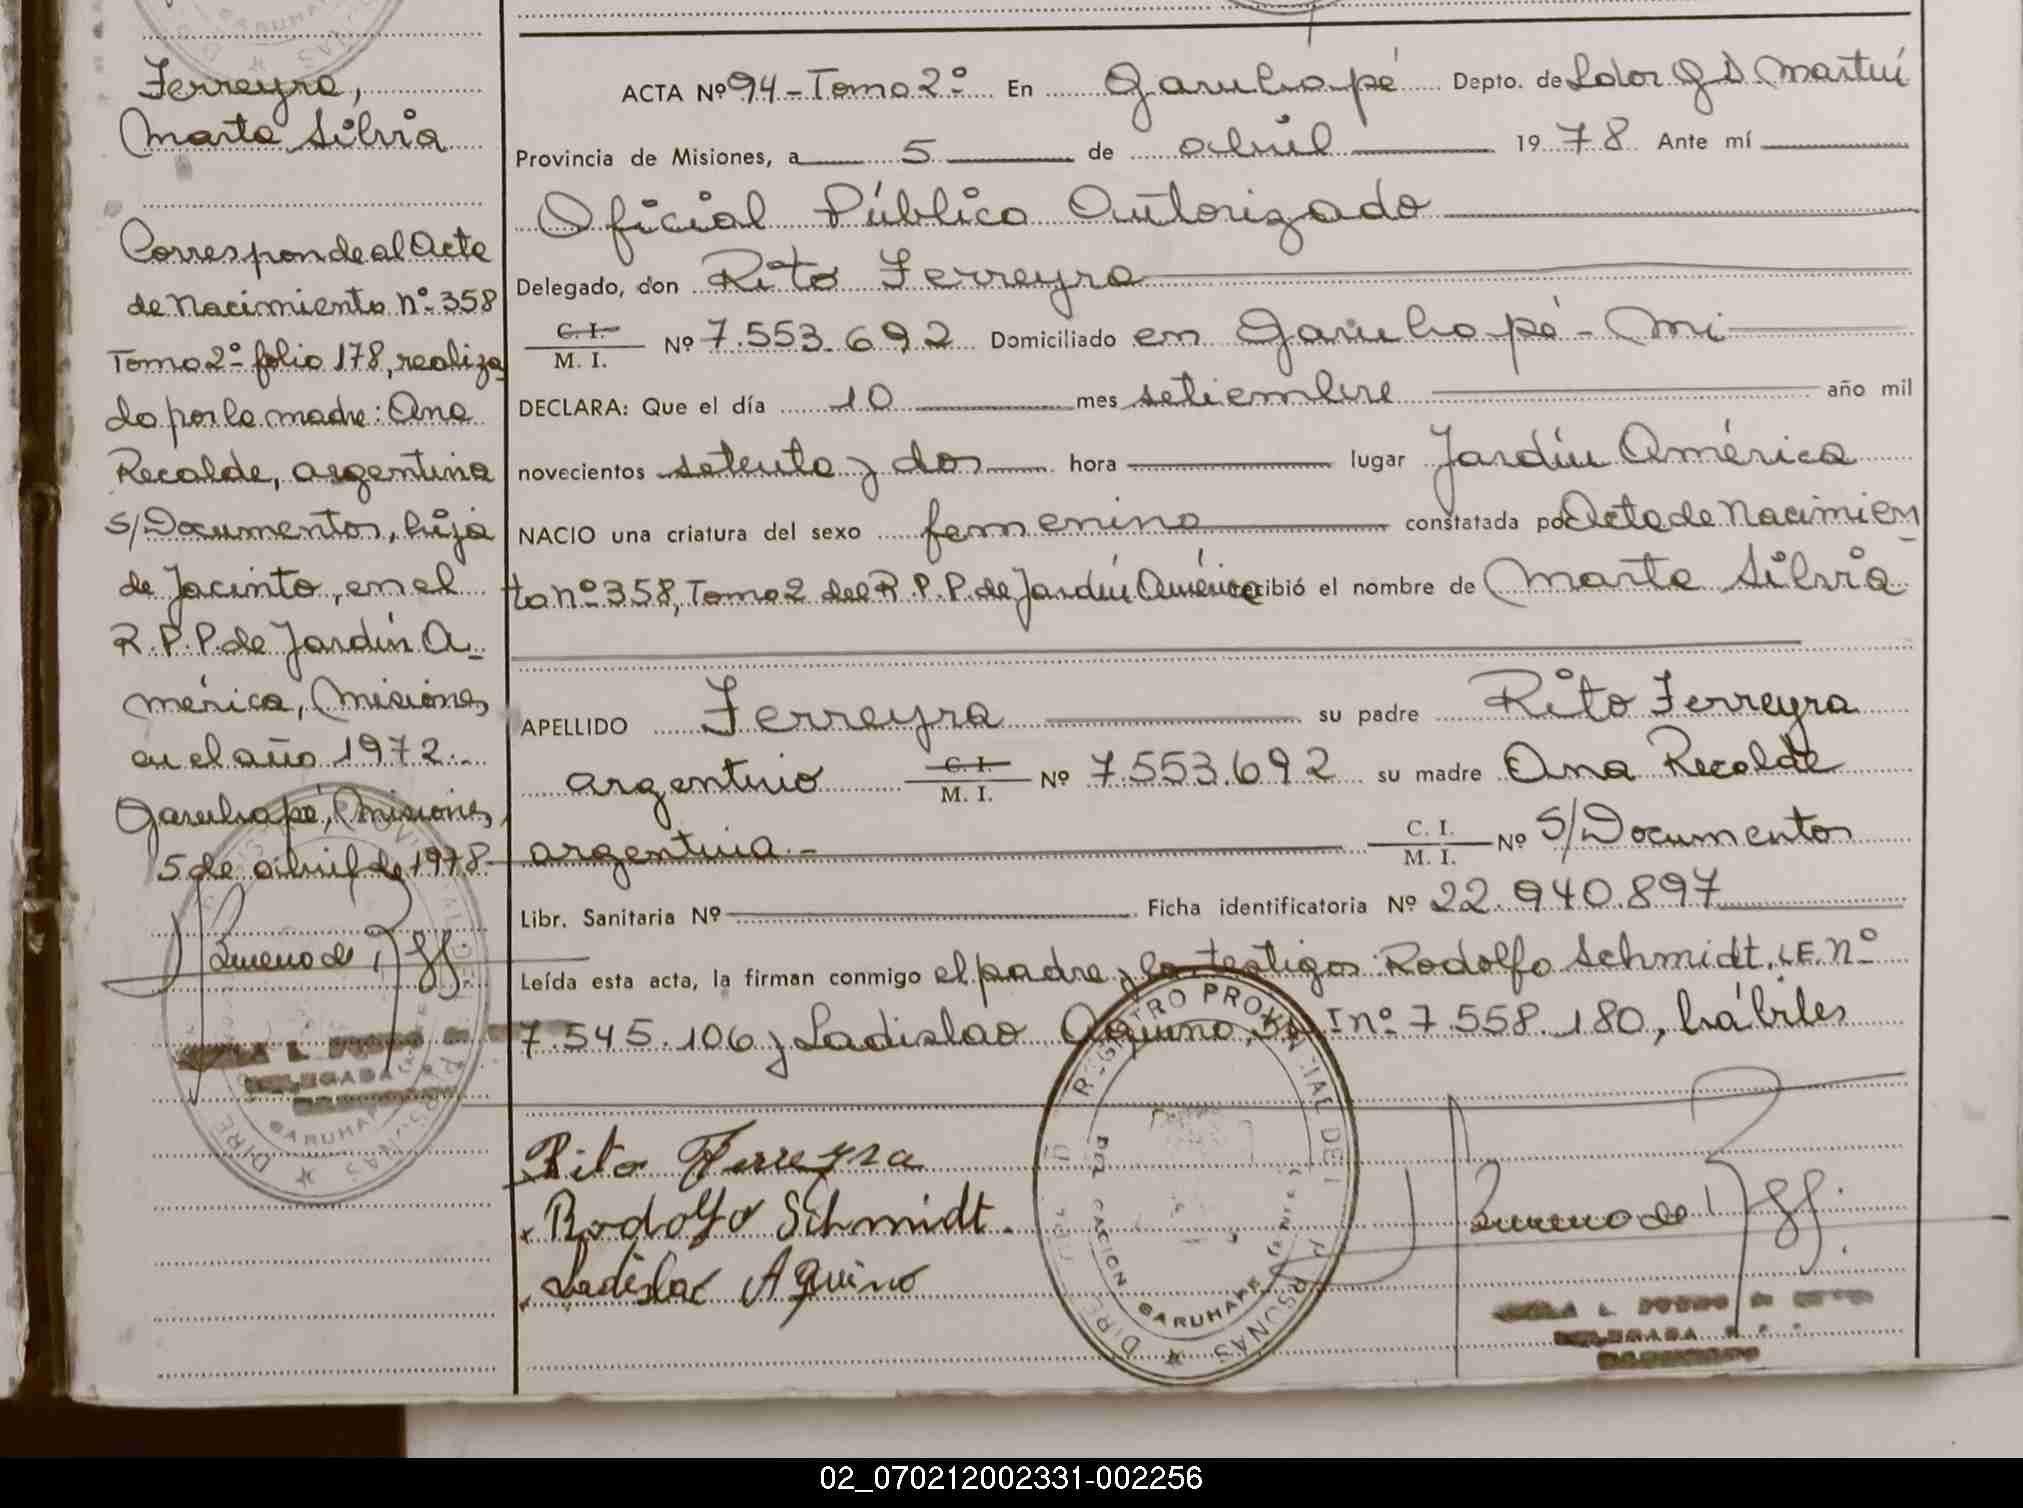 Ferreyra,
Marta Silvia
Corresponde al Acta
de Nacimiento Nº 358
Tomo 2º folio 178, realiza
do por la madre: Ana
Recalde, argentina
S/Documentos, hija
de Jacinto, en el
R.P.P. de Jardín A-
mérica, Misiones,
en el año 1972.-
Garuhapé, Misiones,
5 de abril de 1978-
Bueno de
DELEGADA
GARUHAPE
ACTA Nº 94 - Tomo 2º En Garuhapé Depto. de Ldor G S Martín
Provincia de Misiones, a 5 de abril 1978 Ante mí
Oficial Público Autorizado
Delegado, don Rito Ferreyra
C. I.
M. I. Nº 7.553.692 Domiciliado en Garuhapé - Mi
DECLARA: Que el día 10 mes setiembre año mil
novecientos setenta y dos hora lugar Jardín América
NACIO una criatura del sexo femenino constatada por Acta de Nacimien
to nº 358, Tomo 2 del R.P.P. de Jardín América recibió el nombre de Marta Silvia
APELLIDO Ferreyra su padre Rito Ferreyra
argentino C. I.
M. I. Nº 7.553.692 su madre Ana Recalde
argentina.- C. I.
M. I. Nº S/Documentos
Libr. Sanitaria Nº Ficha identificatoria Nº 22.940.897
Leída esta acta, la firman conmigo el padre y los testigos: Rodolfo Schmidt, L.E. Nº
7.545.106 y Ladislao Aquino, M. I nº 7.558.180, hábiles
Rito Ferreyra
Rodolfo Schmidt.
Ladislao Aquino
REGISTRO PROVINCIAL DE
PERSONAS
GARUHAPE
Bueno de
DELEGADA
02_070212002331-002256